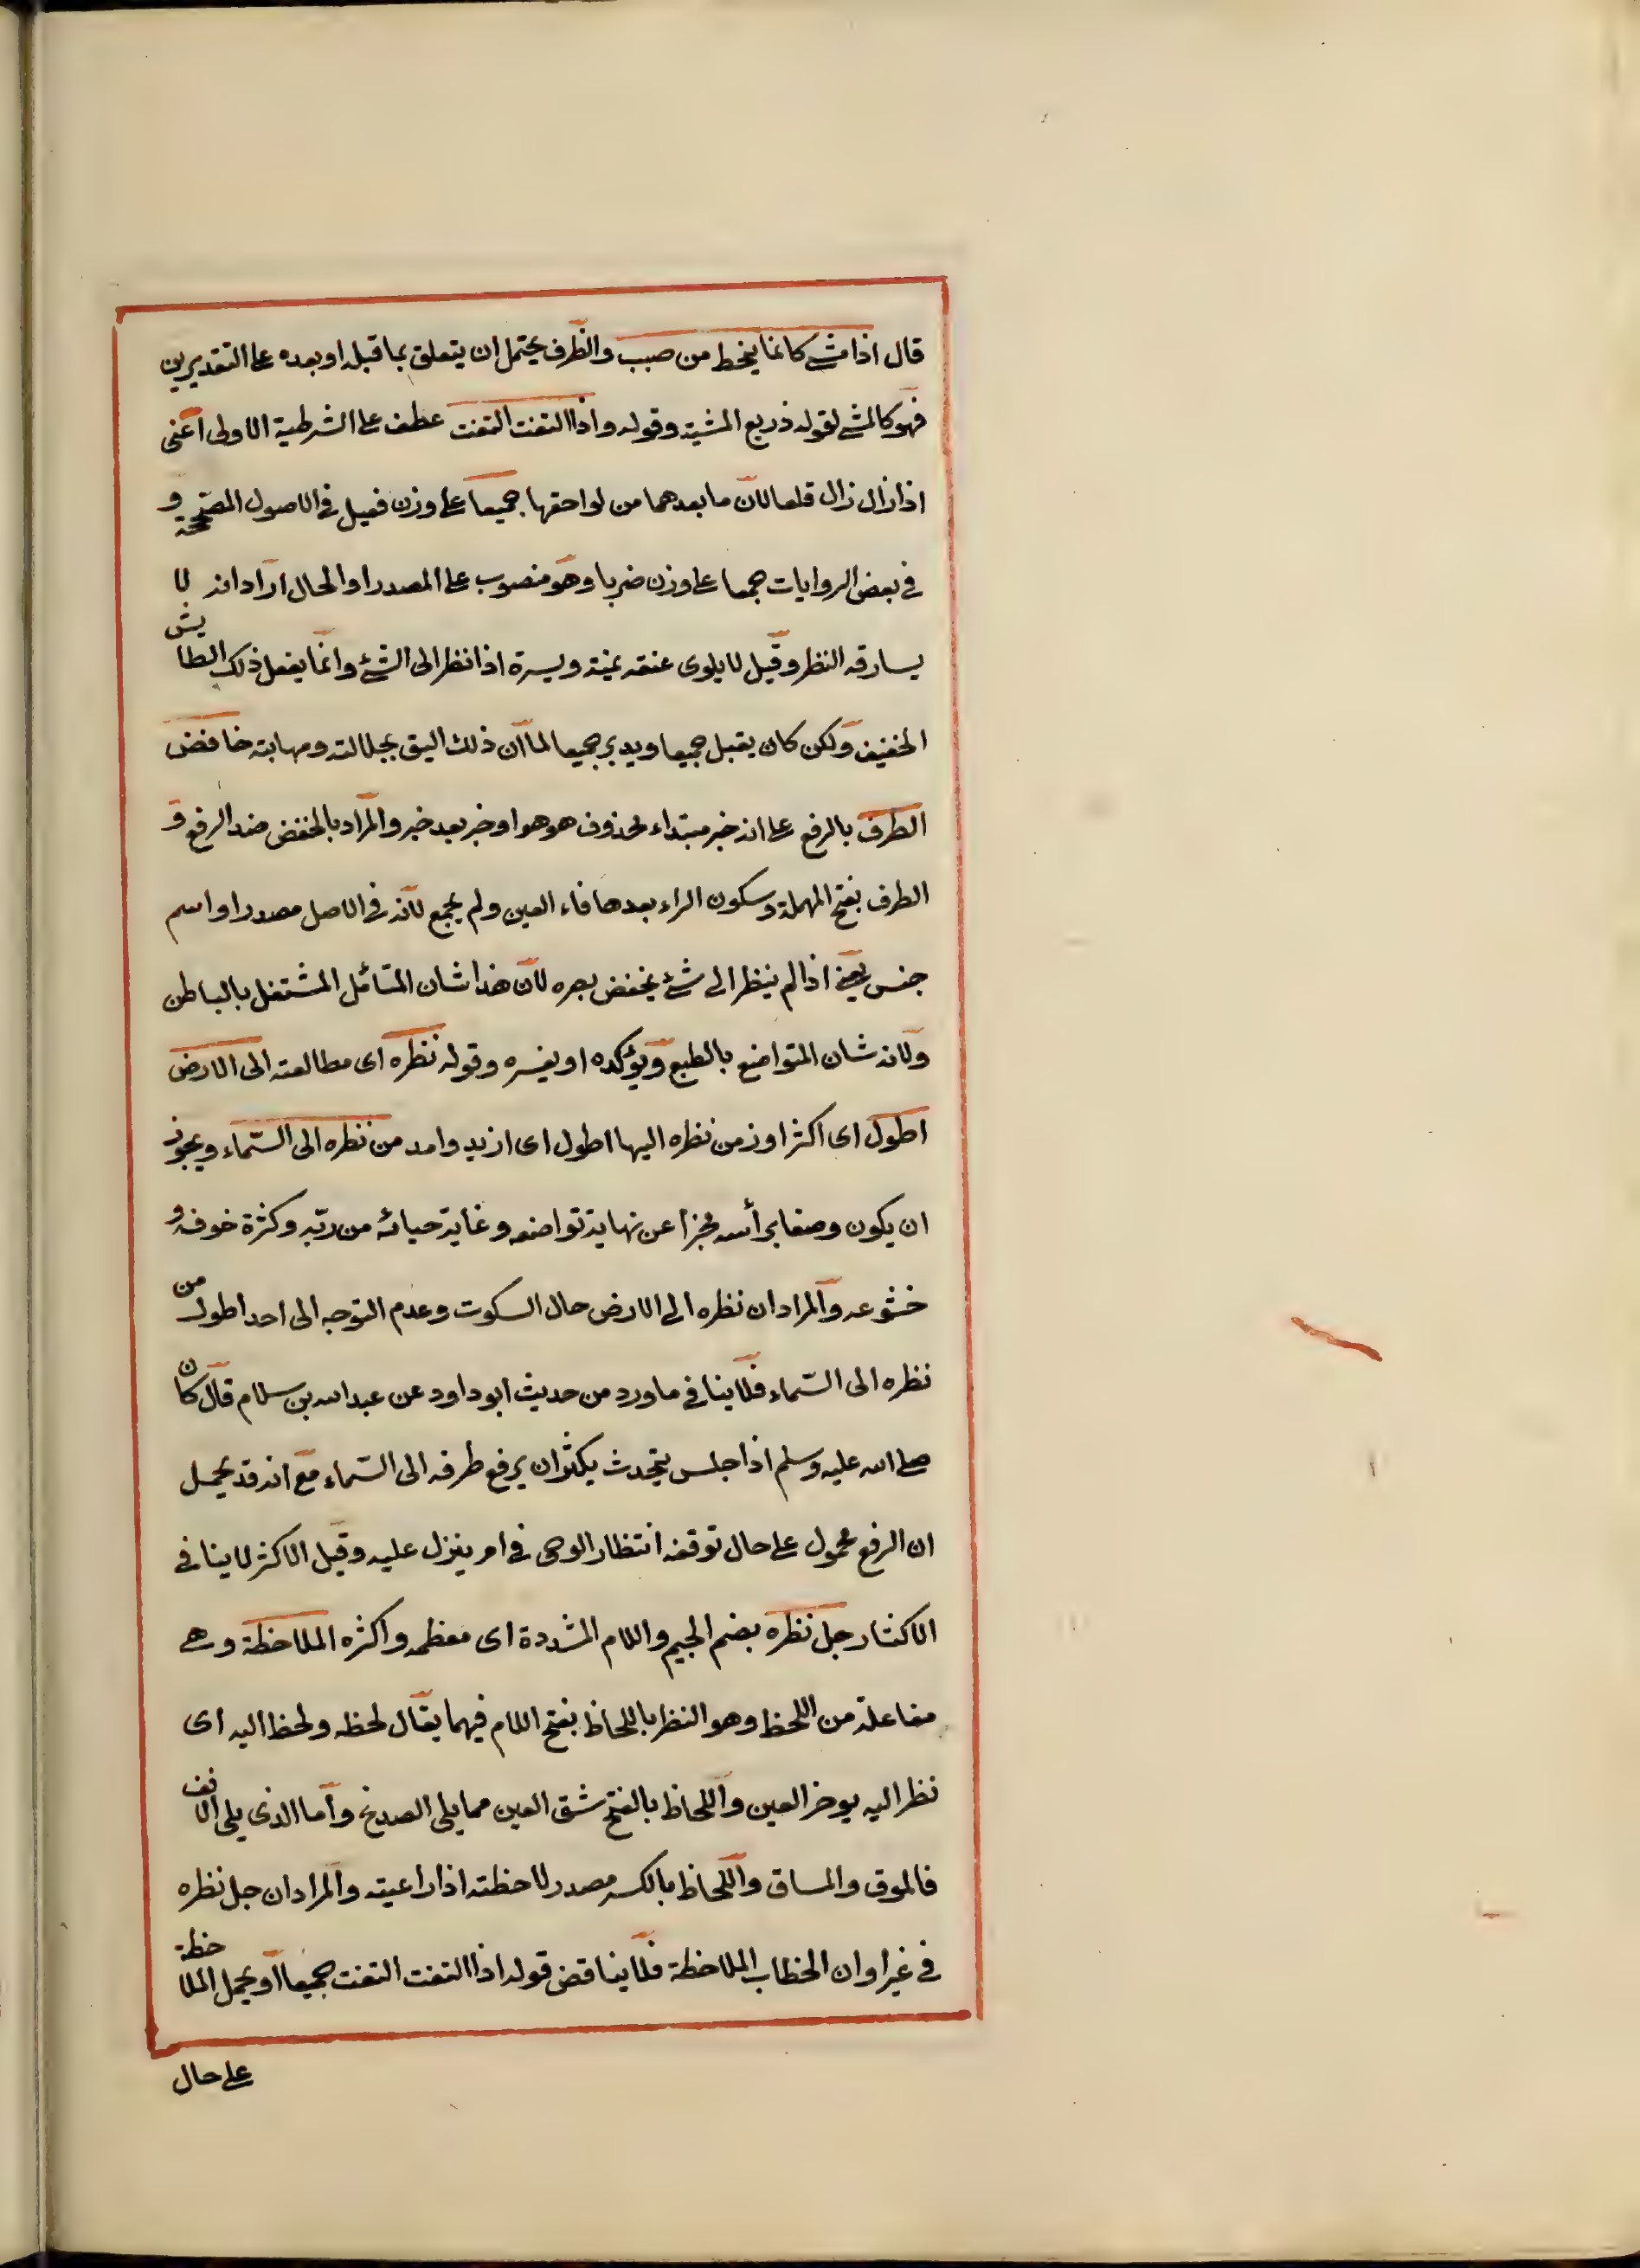 قال اذا مشى كانما ينحط من صبب والظرف يحتمل ان يتعلق بما قبله او بعده على التقديرين
فهو كالمشى لقوله ذريع المشية وقوله واذا التفت التفت عطف على الشرطية الاولى اعنى
اذا زال زال قلعا لان ما بعدهما من لواحقها جميعا على وزن فعيل فى الاصول المصححة و
فى بعض الروايات جمعا على وزن ضربا وهو منصوب على المصدر او الحال اراد انه لا
يسارقه النظر وقيل لا يلوى عنقه يمنة ويسرة اذا نظر الى الشئ وانما يفعل ذلك الطايش
الخفيف ولكن كان يقبل جميعا ويدبر جميعا لما ان ذلك اليق بجلالته ومهابته خافض
الطرف بالرفع على انه خبر مبتداء محذوف هو هو او خبر بعد خبر والمراد بالخفض ضد الرفع و
الطرف بفتح المهملة وسكون الراء بعدها فاء العين ولم يجمع لانه فى الاصل مصدر او اسم
جنس يعنى اذا لم ينظر الى شئ يخفض بصره لان هذا شان المتائمل المشتغل بالباطن
ولانه شان المتواضع بالطبع ويؤكده او يفسره وقوله نظره اى مطالعته الى الارض
اطول اى اكثر او زمن نظره اليها اطول اى ازيد وامد من نظره الى السماء ويجوز
ان يكون وصفا برأسه مخبرا عن نهاية تواضعه وغاية حيائه من ربه وكثرة خوفه و
خشوعه والمراد ان نظره الى الارض حال السكوت وعدم التوجه الى احد اطول من
نظره الى السماء فلا ينافى ما ورد من حديث ابو داود عن عبد الله بن سلام قال كان
صلى الله عليه وسلم اذا جلس يتحدث يكثر ان يرفع طرفه الى السماء مع انه قد يحمل
ان الرفع محمول على حال توقفه انتظار الوحى فى امر ينزل عليه وقيل الاكثر لا ينافى
الاكثار جل نظره بضم الجيم واللام المشددة اى معظمه واكثره الملاحظة وهى
مفاعلة من اللحظ وهو النظر باللحاظ بفتح اللام فيهما يقال لحظه ولحظ اليه اى
نظر اليه بموخر العين واللحاظ بالفتح شق العين مما يلى الصدغ واما الذى يلى الانف
فالموق والماق واللحاظ بالكسر مصدر لاحظته اذا راعيته والمراد ان جل نظره
فى غير اوان الخطاب الملاحظة فلا يناقض قوله اذا التفت التفت جميعا او يحمل الملاحظة
على حال